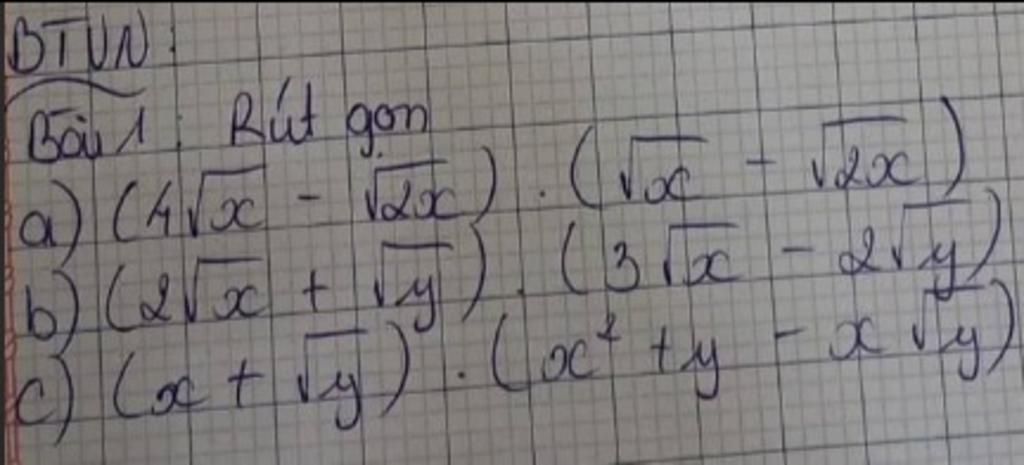 BTVN:
Bài 1: Rút gọn
a) (4√x - √2x) . (√x - √2x)
b) (2√x + √y) . (3√x - 2√y)
c) (x + √y) . (x² + y - x√y)